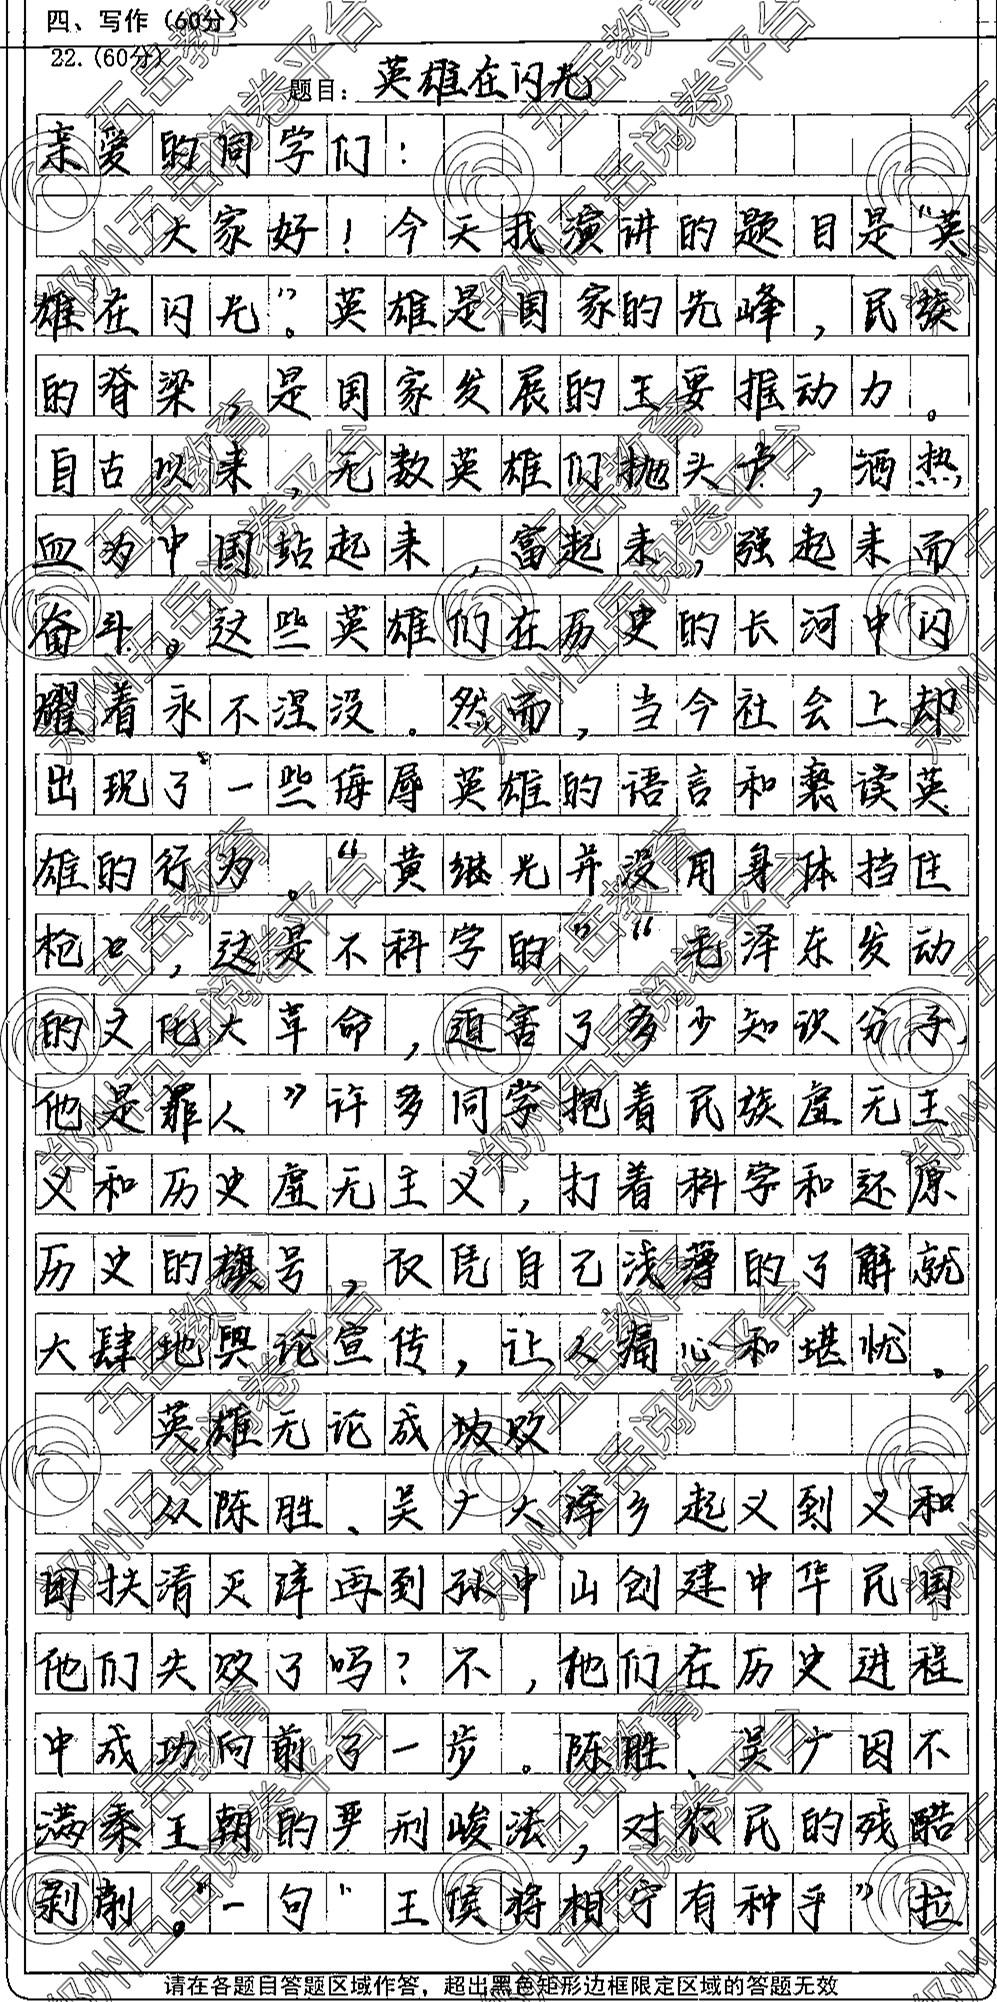 四、写作（60分）
22.（60分）
题目：英雄在闪光
亲爱的同学们：
大家好！今天我演讲的题目是“英
雄在闪光”。英雄是国家的先峰，民族
的脊梁，是国家发展的主要推动力。
自古以来，无数英雄们抛头卢，洒热
血为中国站起来，富起来，强起来而
奋斗。这些英雄们在历史的长河中闪
耀着永不涅没．然而，当今社会上却
出现了一些侮辱英雄的语言和亵读英
雄的行为。“黄继光并没用身体挡住
枪口，这是不科学的”“毛泽东发动
的文化大革命，迫害了多少知识分子，
他是罪人”许多同学抱着民族虚无主
义和历史虚无主义，打着科学和还原
历史的旗号，仅凭自己浅薄的了解就
大肆地舆论宣传，让人痛心和堪忧。
英雄无论成坡败
从陈胜、吴广大泽乡起义到义和
团扶清灭洋再到孙中山创建中华民国
他们失败了吗？不，他们在历史进程
中成功向前了一步。陈胜、吴广因不
满秦王朝的严刑峻法，对农民的残酷
剥削。一句“王侯将相宁有种乎”拉
请在各题目答题区域作答，超出黑色矩形边框限定区域的答题无效
郑州五岳阅卷平台
五岳教育